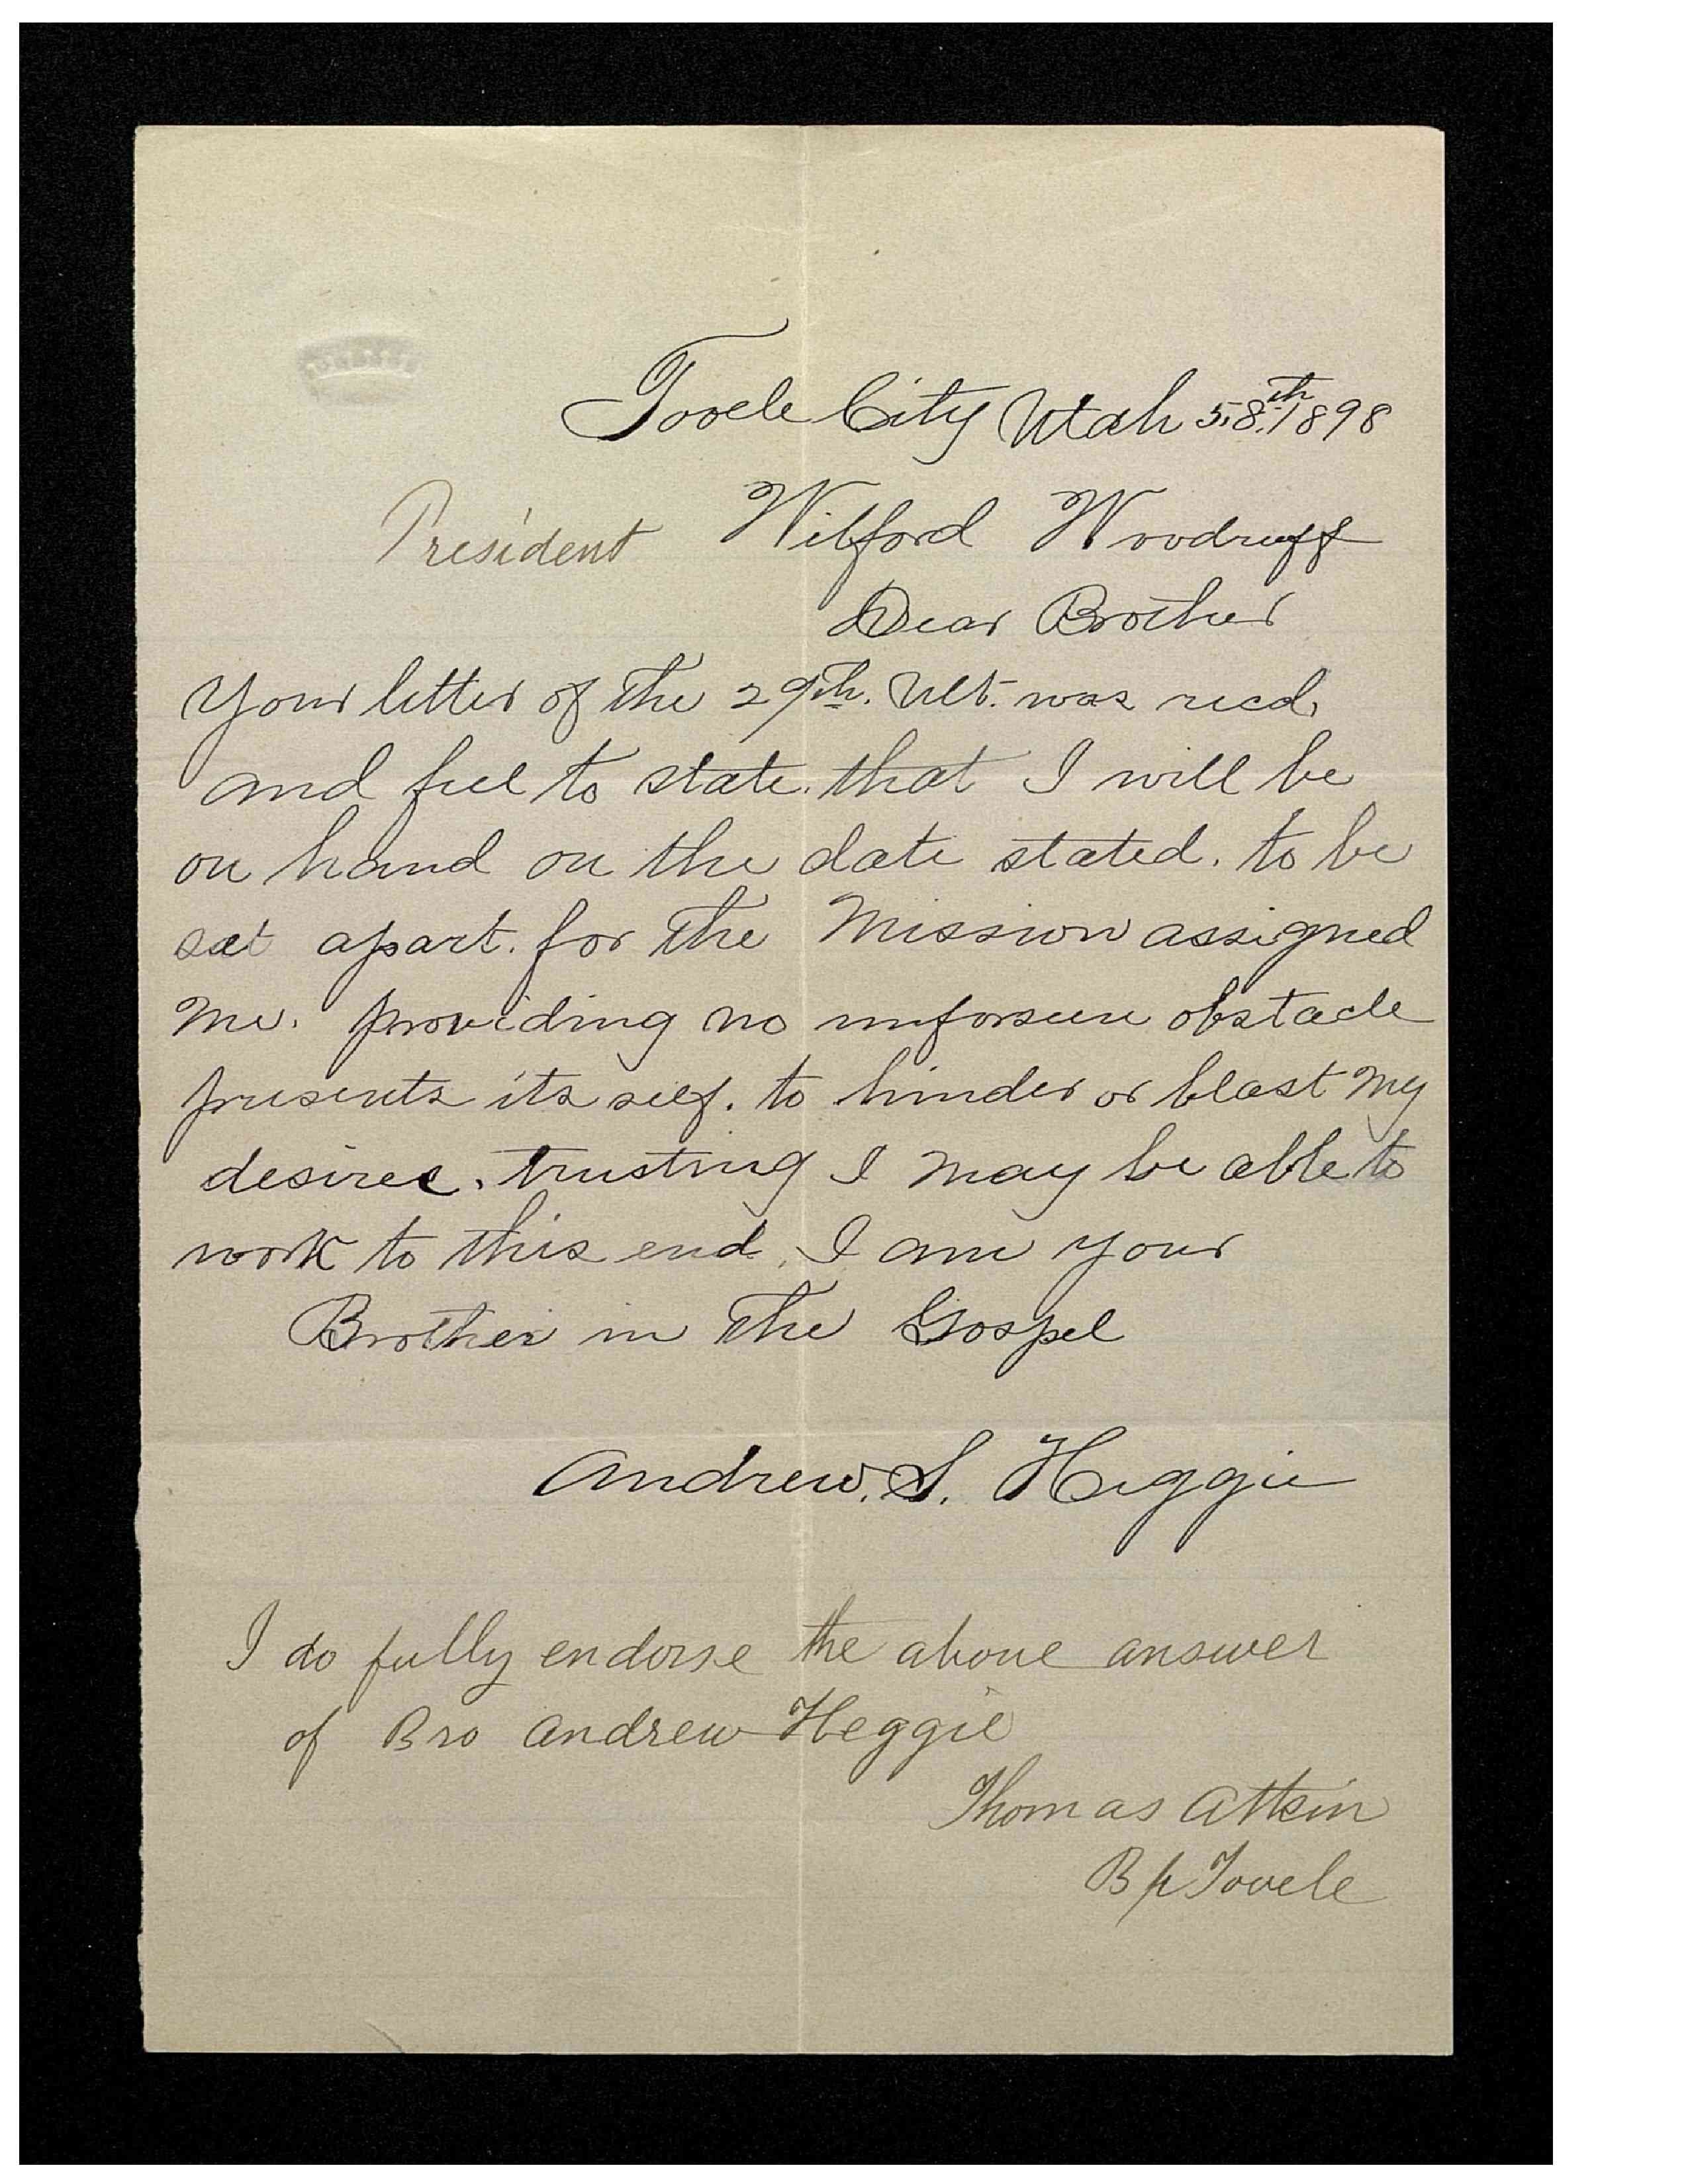 Tooele City Utah 5.8.th 1898
President Wilford Woodruff
Dear Brother
Your letter of the 29th. Ult. was recd,
and feel to state. that I will be
on hand on the date stated. to be
set apart. for the Mission assigned
me. providing no unforseen obstacle
presents its self. to hinder or blast my
desires. trusting I may be able to
work to this end, I am your
Brother in the Gospel
Andrew. S. Heggie
I do fully endorse the above answer
of Bro Andrew Heggie
Thomas Atkin
Bp Tooele